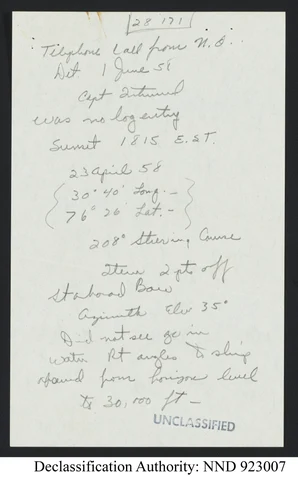 28 171
Telephone call from N.O.
Det 1 June 58
Capt
was no log entry
Sunset 1815 E.S.T.
23 April 58
30° 40' Long. -
76° 26' Lat. -
208° Steering Course
2 pts off
Starboard Bow
Azimuth Elv 35°
Did not see go in
water Rt angles to ship
from horizon level
to 30,000 ft -
UNCLASSIFIED
Declassification Authority: NND 923007